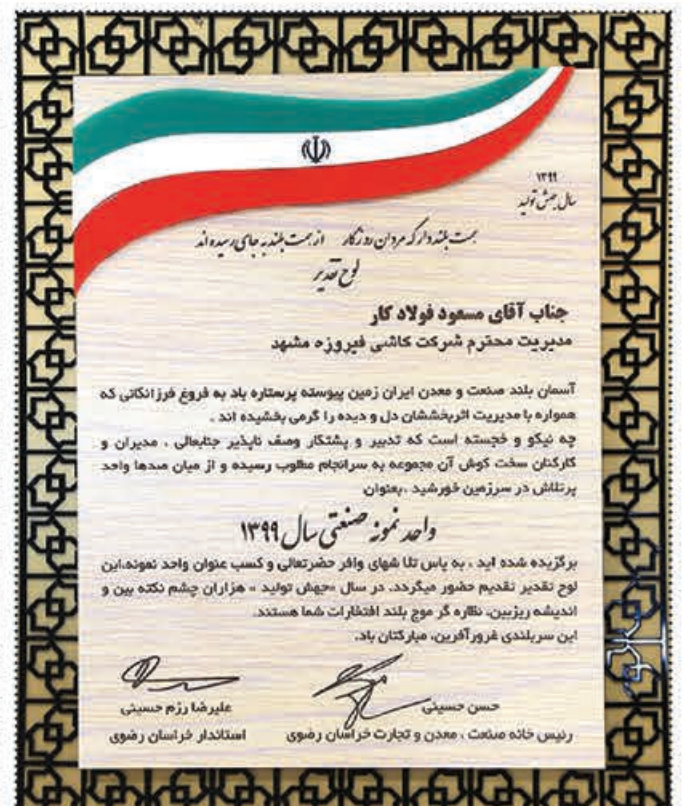 ۱۳۹۹
سال جهش تولید
همت بلند دار که مردان روزگار از همت بلند به جای رسیده اند
لوح تقدیر
جناب آقای مسعود فولاد کار
مدیریت محترم شرکت کاشی فیروزه مشهد
آسمان بلند صنعت و معدن ایران زمین پیوسته پرستاره باد به فروغ فرزانگانی که
همواره با مدیریت اثربخششان دل و دیده را گرمی بخشیده اند .
چه نیکو و خجسته است که تدبیر و پشتکار وصف ناپذیر جنابعالی ، مدیران و
کارکنان سخت کوش آن مجموعه به سرانجام مطلوب رسیده و از میان صدها واحد
پرتلاش در سرزمین خورشید ،بعنوان
واحد نمونه صنعتی سال ۱۳۹۹
برگزیده شده اید ، به پاس تلا شهای وافر حضرتعالی و کسب عنوان واحد نمونه،این
لوح تقدیر تقدیم حضور میگردد. در سال «جهش تولید » هزاران چشم نکته بین و
اندیشه ریزبین، نظاره گر موج بلند افتخارات شما هستند.
این سربلندی غرورآفرین، مبارکتان باد.
حسن حسینی
رئیس خانه صنعت ، معدن و تجارت خراسان رضوی
علیرضا رزم حسینی
استاندار خراسان رضوی